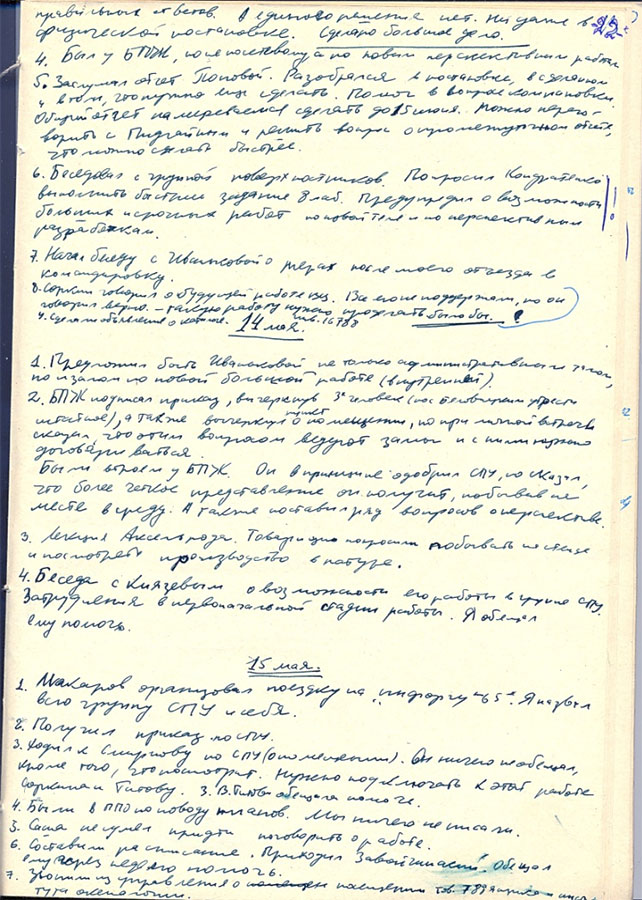 правильных ответов. А единого решения нет. Ни даже в 22
физической постановке. Сделано большое дело.
4. Был у БПЖ, после по новым перспективным работам
5. Заслушал отчет Поповой. Разобрался в постановке, в сделанном
и в том, что нужно еще сделать. Помог в вопросе компановки.
Общий отчет намереваемся сделать до 15 июня. Можно перего-
ворить с и решить вопрос о промежуточном отчете,
что можно сделать быстрее.
6. Беседовал с группой поверхностников. Попросил Кондратенко
выполнить быстрее задание 8 лаб. Предупредил о возможности
больших и срочных работ по новой теме и по перспективным
разработкам.
7. Начал беседу с Ивашковой о мерах после моего отъезда в
командировку.
8. Соркин говорил о будущей работе Все меня поддержали, но он
говорил верно. – такую работу нужно проделать было бы. !
9. Сделали объявление о 16788
14 мая.
1. Предложил быть Ивашковой не только административным
но и замом по новой большой работе (внутренней).
2. БПЖ подписал приказ, вычеркнув 3х человек
а также вычеркнул пункт о помещении, но при личной встрече
сказал, что этим вопросом ведают замы и с ними нужно
договариваться.
Были втроем у БПЖ. Он в принципе одобрил СПУ, но сказал,
что более четкое представление он получит, побывав на
месте в среду. А также поставил ряд вопросов о перспективе.
3. Лекция Аксельрода. Товарищи попросили побывать на стенде
и посмотреть производство в натуре.
4. Беседа с Князевым о возможности его работы в группе СПУ.
Затруднения в первоначальной стадии работы. Я обещал
ему помочь.
15 мая.
1. Макаров организовал поездку на „Инфоргу-65“. Я назвал
всю группу СПУ и себя.
2. Получил приказ по СПУ.
3. Ходил к Смирнову по СПУ (о помещении). Он ничего не обещал,
кроме того, что посмотрит. Нужно подключать к этой работе
Соркина и Титову. З. В. Титова обещала помочь.
4. Были в ППО по поводу планов. Мы ничего не писали.
5. Саша не сумел придти поговорить о работе.
6. Составили расписание. Приходил Завойчинский. Обещал
ему через неделю помочь.
7. Звонили из управления о